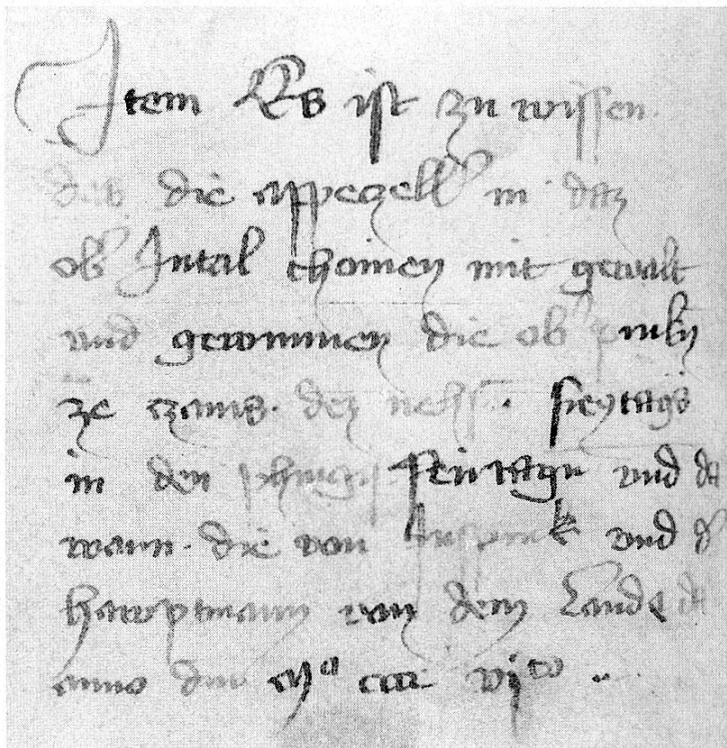 Item Es ist zu wissen
das die appeczell' in daz
ob' Intal chomen mit gewalt
und gewunnen die ob' prukn
ze zams. dez nehst. freytags
in den phingst feirtagn und da
warn. die von Inspruk und d'
hawptmann von dem Lande da
anno dni Mo cccc vjto ..